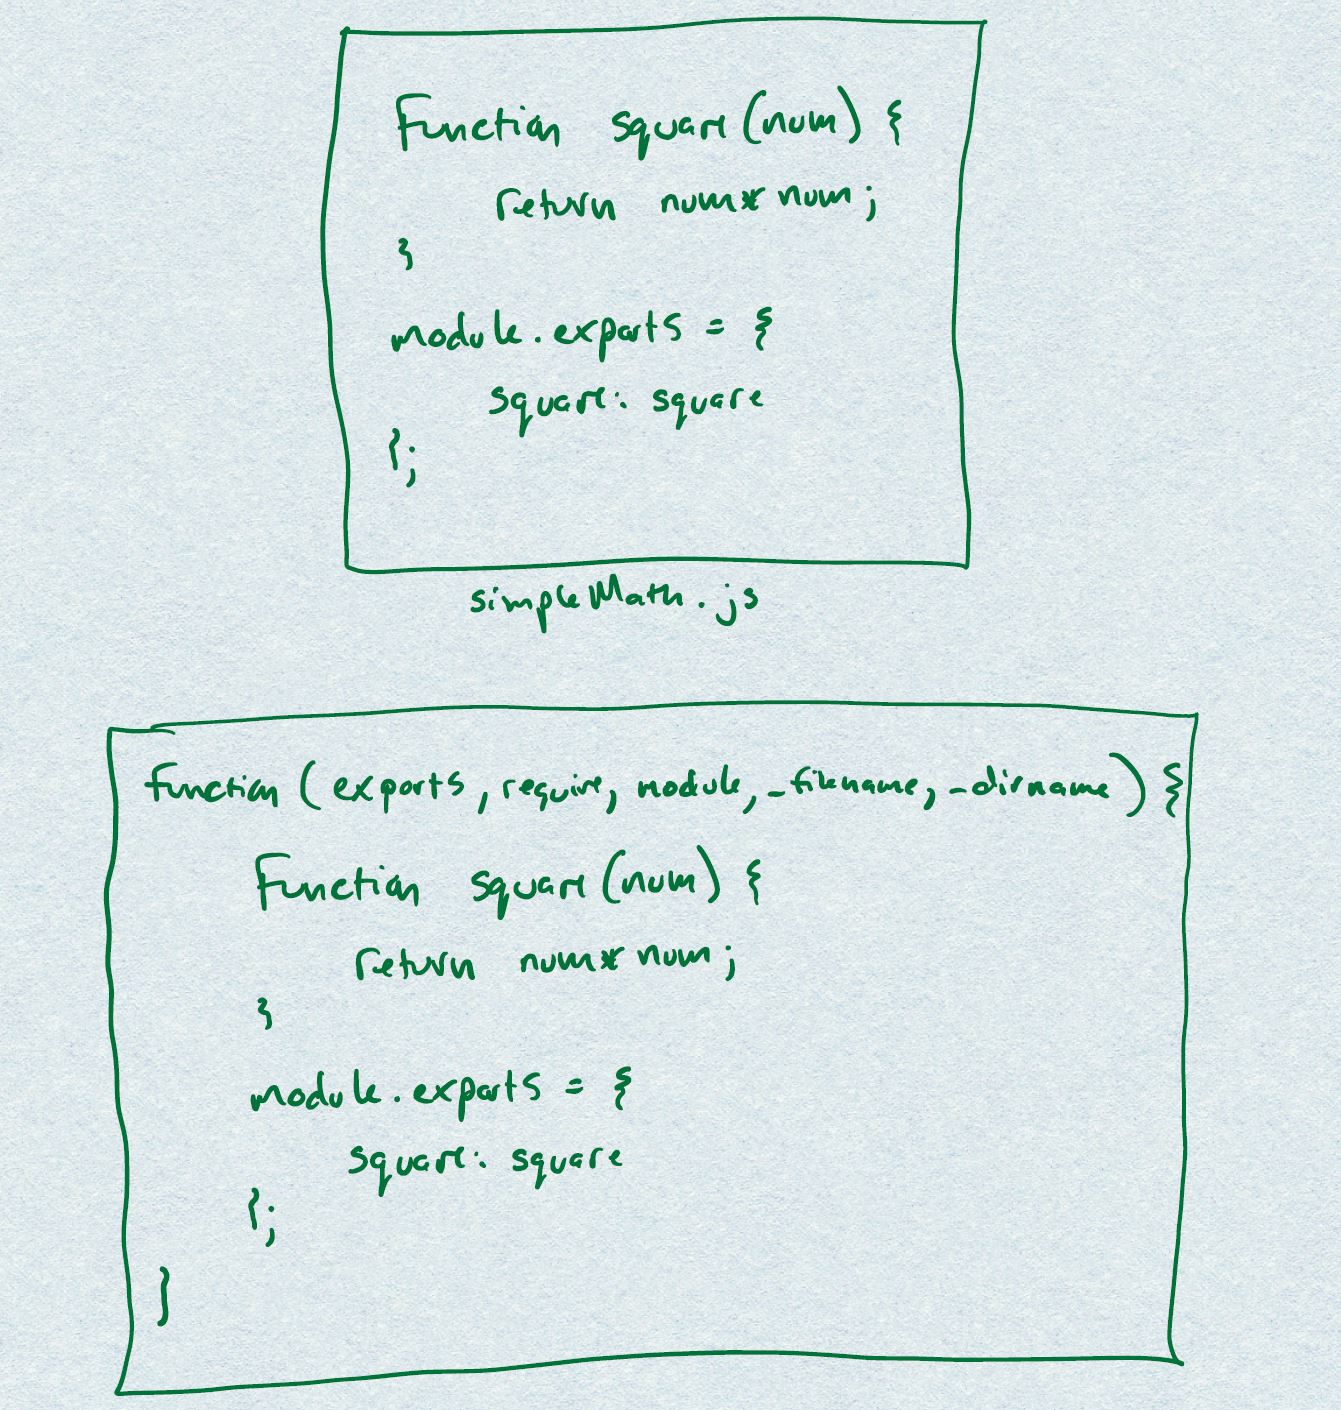 function square(num) {
return num*num;
}
module.exports = {
square: square
};
simpleMath.js
function(exports, require, module, _filename, _dirname) {
function square(num) {
return num*num;
}
module.exports = {
square: square
};
}